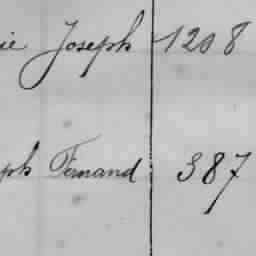 ie Joseph 1208
ph Fernand 387